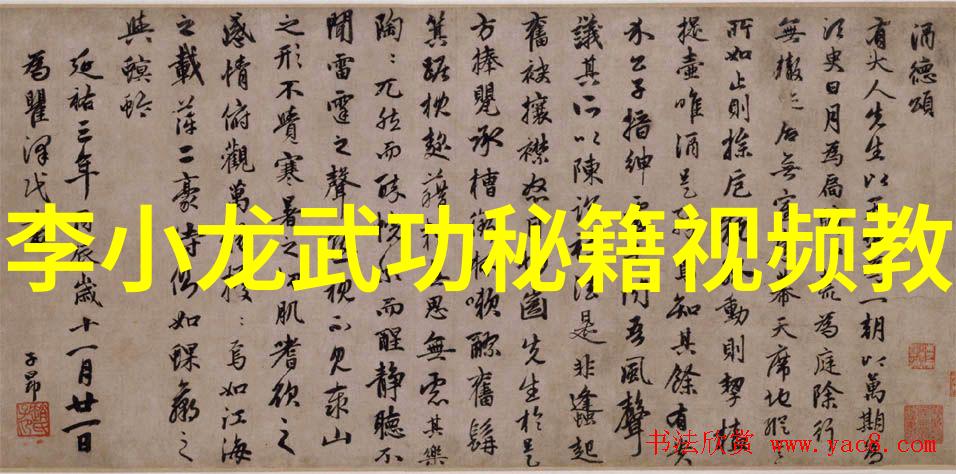 酒德頌
有大人先生以天一朝以萬期為
須臾日月為扃荒為庭除行
無轍迹居無室幕天席地縱意
所如止則操卮執動則挈榼
提壺唯酒是知其餘有貴
介公子搢紳聞吾風聲
議其所以陳說法是非蠭起
奮袂攘襟怒目齒先生於是
方捧甖承槽銜漱醪奮髯
箕踞枕麴藉無思無慮其樂
陶〻兀然而醉恍尔而醒靜聽不
聞雷霆之聲視不見泰山
之形不覺寒暑之切肌嗜欲之
感情俯觀萬擾〻焉如江海
之載萍二豪侍側如蜾蠃之
與螟蛉
延祐三年丙辰歲十一月廿一日
為瞿澤民
子昂
李小龙武功秘籍视频教
书法欣赏 www.yac8.com